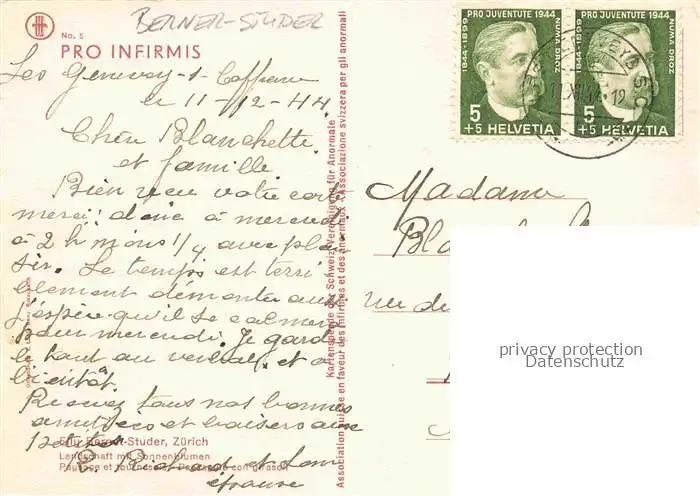 BERNER-STUDER
No. 5
PRO INFIRMIS
Les Genevey-s-Coffrane
le 11-12-44
Chère Blanchette
et famille
Bien reçu votre carte
merci! donc à mercredi
à 2 h moins 1/4 avec plai
sir. Le temps est terri
blement démonté aussi
j'espère qu'il se calmera
pour mercredi. Je garde
le haut au et à
bientôt.
Recevez tous nos bonnes
amitiés et baisers aux
et
Berner-Studer, Zürich
Landschaft mit Sonnenblumen
Paysage et tournesols Paesaggio con girasoli
Kartenspende der Schweiz. Vereinigung für Anormale
Association suisse en faveur des infirmes et des anormaux • Associazione svizzera per gli anormali
PRO JUVENTUTE 1944
1844-1899
NUMA DROZ
5
+5 HELVETIA
PRO JUVENTUTE 1944
1844-1899
NUMA DROZ
5
+5 HELVETIA
Madame
privacy protection
Datenschutz